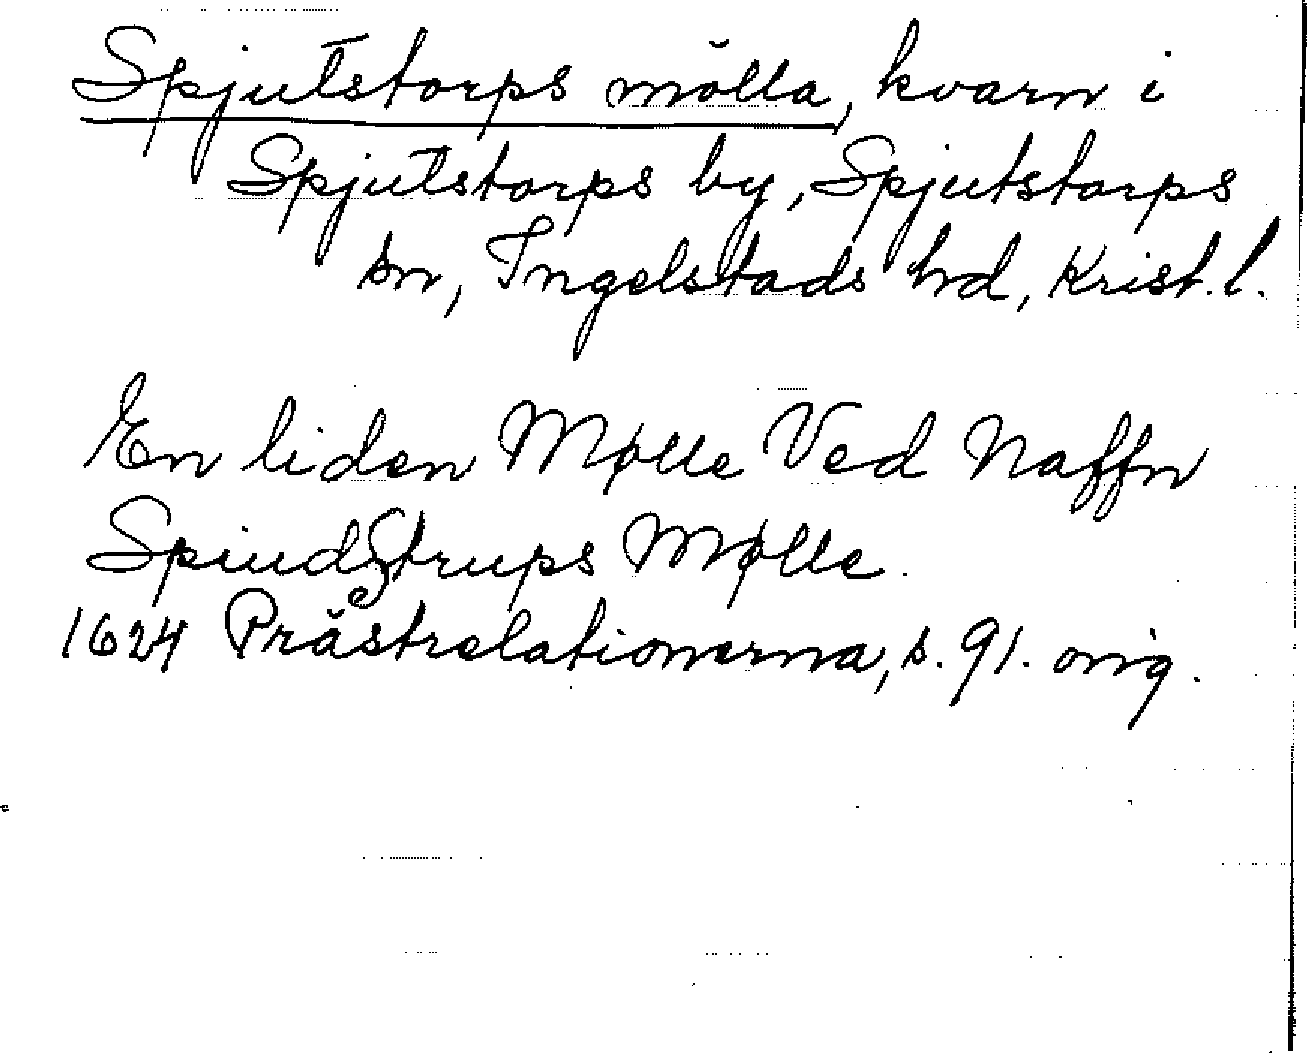 Spjutstorps mölla, kvarn i
Spjutstorps by, Spjutstorps
sn, Ingelstads hd, Krist. l.
En liden Mølle Ved Naffn
Spiudstrups Mølle.
1624 Prästrelationerna, s. 91. orig.